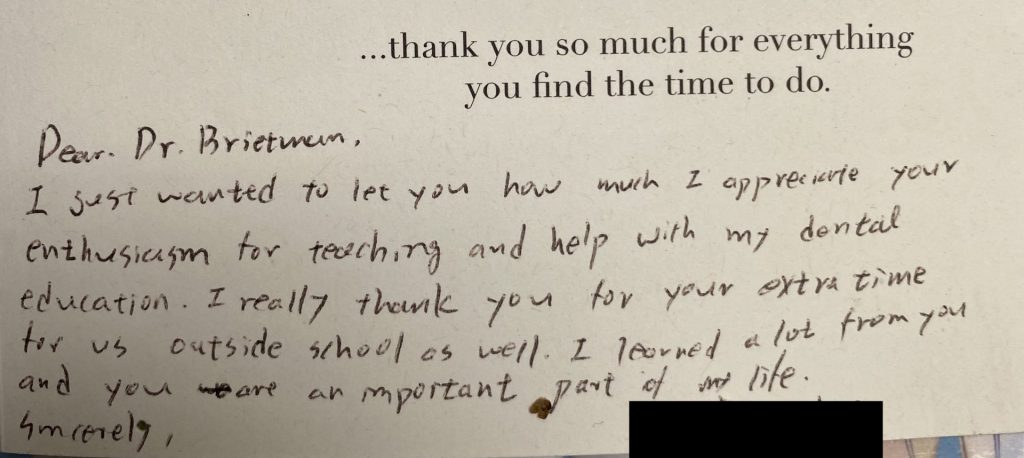 ...thank you so much for everything
you find the time to do.
Dear. Dr. Brietman,
I just wanted to let you how much I appreciate your
enthusiasm for teaching and help with my dental
education. I really thank you for your extra time
for us outside school as well. I learned a lot from you
and you are an mportant part of my life.
Sincerely,